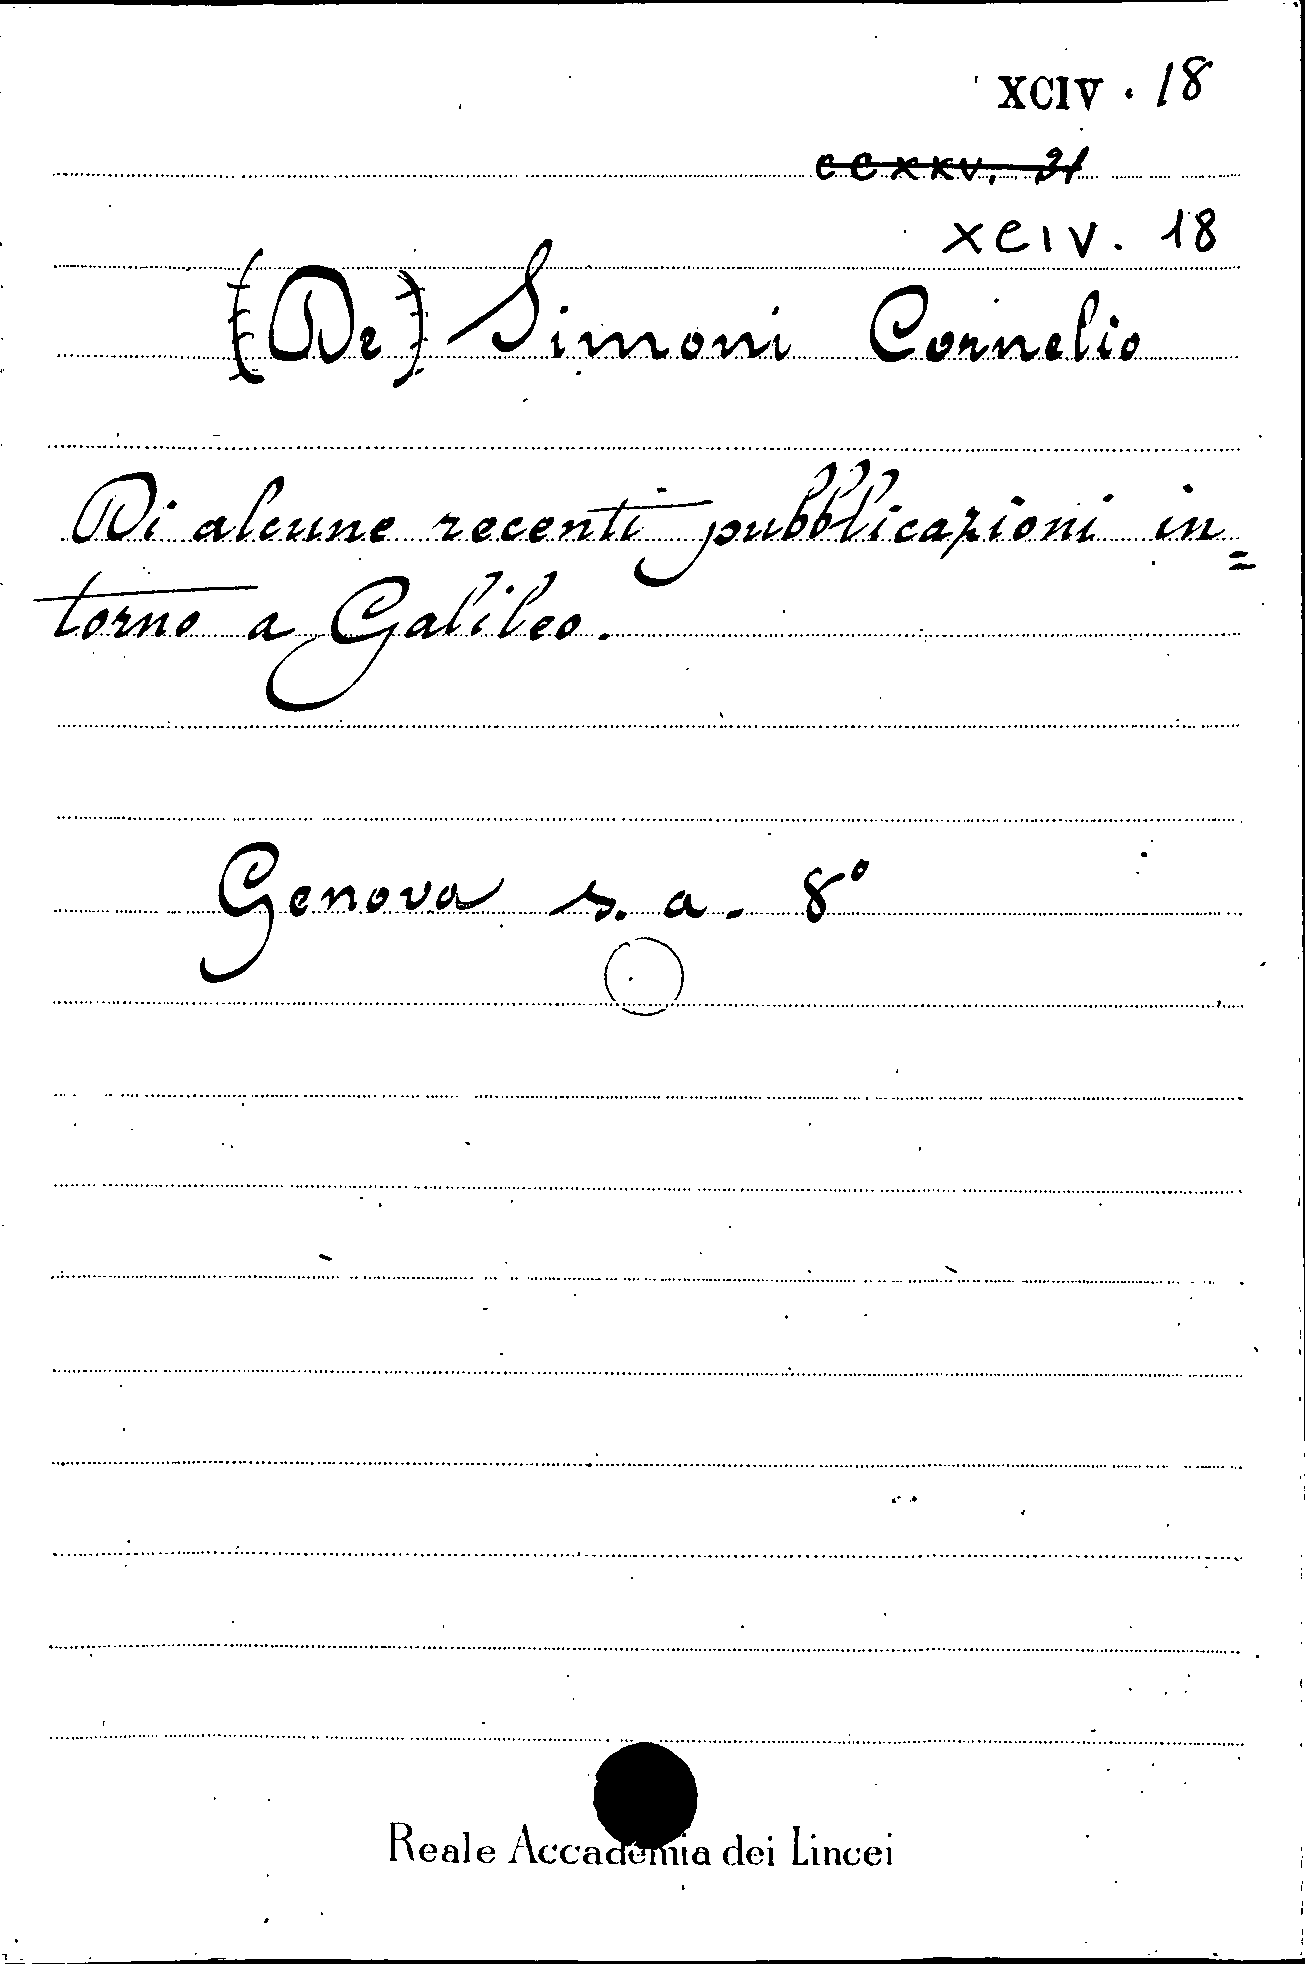 XCIV . 18
CCXXV. 31
XCIV. 18
(De) Simoni Cornelio
Di alcune recenti pubblicazioni in=
torno a Galileo.
Genova s. a. 8°
Reale Accademia dei Lincei